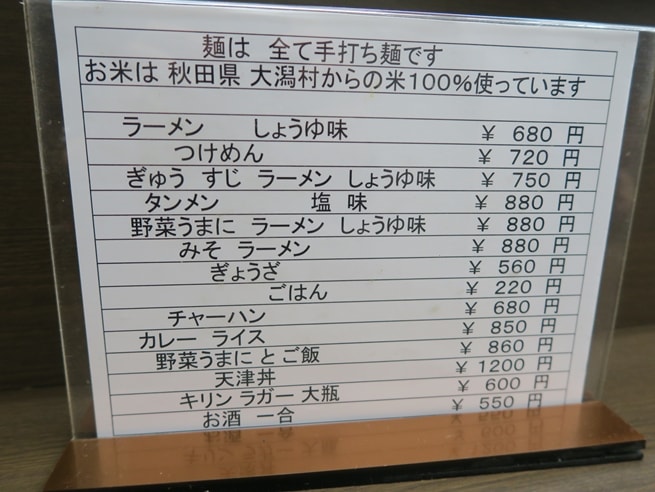 麺は 全て手打ち麺です
お米は 秋田県 大潟村からの米100%使っています
ラーメン しょうゆ味 ¥ 680 円
つけめん ¥ 720 円
ぎゅう すじ ラーメン しょうゆ味 ¥ 750 円
タンメン 塩 味 ¥ 880 円
野菜うまに ラーメン しょうゆ味 ¥ 880 円
みそ ラーメン ¥ 880 円
ぎょうざ ¥ 560 円
ごはん ¥ 220 円
チャーハン ¥ 680 円
カレー ライス ¥ 850 円
野菜うまに と ご飯 ¥ 860 円
天津丼 ¥ 1200 円
キリン ラガー 大瓶 ¥ 600 円
お酒 一合 ¥ 550 円